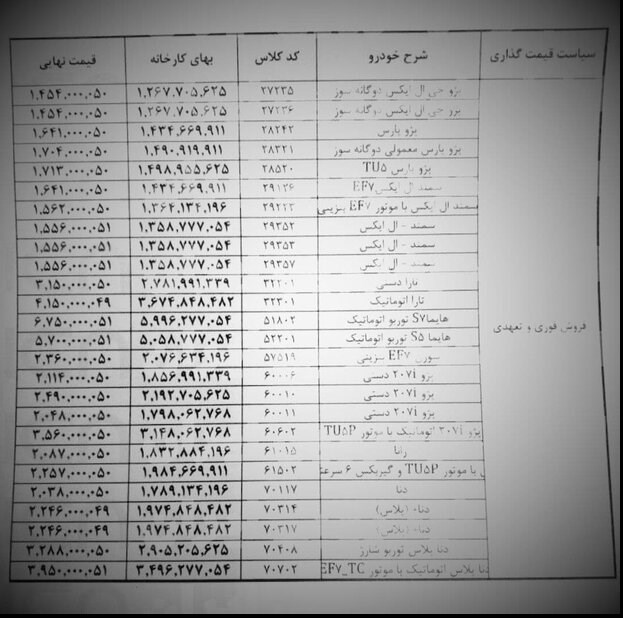 سیاست قیمت گذاری شرح خودرو کد کلاس بهای کارخانه قیمت نهایی
فروش فوری و تعهدی
پژو جی ال ایکس دوگانه سوز ۲۷۲۳۵ ۱.۲۶۷.۷۰۵.۶۲۵ ۱.۴۵۴.۰۰۰.۰۵۰
پژو جی ال ایکس دوگانه سوز ۲۷۲۳۶ ۱.۲۶۷.۷۰۵.۶۲۵ ۱.۴۵۴.۰۰۰.۰۵۰
پژو پارس ۲۸۲۴۲ ۱.۴۳۴.۶۶۹.۹۱۱ ۱.۶۴۱.۰۰۰.۰۵۰
پژو پارس معمولی دوگانه سوز ۲۸۳۲۱ ۱.۴۹۰.۹۱۹.۹۱۱ ۱.۷۰۴.۰۰۰.۰۵۰
پژو پارس TU۵ ۲۸۵۲۰ ۱.۴۹۸.۹۵۵.۶۲۵ ۱.۷۱۳.۰۰۰.۰۵۰
سمند ال ایکس EF۷ ۲۹۱۲۶ ۱.۴۳۴.۶۶۹.۹۱۱ ۱.۶۴۱.۰۰۰.۰۵۰
سمند ال ایکس با موتور EF۷ بنزینی ۱.۳۶۴.۱۳۴.۱۹۶ ۱.۵۶۲.۰۰۰.۰۵۰
سمند - ال ایکس ۲۹۳۵۲ ۱.۳۵۸.۷۷۷.۰۵۴ ۱.۵۵۶.۰۰۰.۰۵۱
سمند - ال ایکس ۲۹۳۵۳ ۱.۳۵۸.۷۷۷.۰۵۴ ۱.۵۵۶.۰۰۰.۰۵۱
سمند - ال ایکس ۲۹۳۵۷ ۱.۳۵۸.۷۷۷.۰۵۴ ۱.۵۵۶.۰۰۰.۰۵۱
تارا دستی ۳۲۲۰۱ ۲.۷۸۱.۹۹۱.۳۳۹ ۳.۱۵۰.۰۰۰.۰۵۰
تارا اتوماتیک ۳۲۳۰۱ ۳.۶۷۴.۸۴۸.۴۸۲ ۴.۱۵۰.۰۰۰.۰۴۹
هایما S۷ توربو اتوماتیک ۵۱۸۰۲ ۵.۹۹۶.۲۷۷.۰۵۴ ۶.۷۵۰.۰۰۰.۰۵۱
هایما S۵ توربو اتوماتیک ۵۲۲۰۱ ۵.۰۵۸.۷۷۷.۰۵۴ ۵.۷۰۰.۰۰۰.۰۵۱
سورن EF۷ بنزینی ۵۷۵۱۹ ۲.۰۷۶.۶۳۴.۱۹۶ ۲.۳۶۰.۰۰۰.۰۵۰
پژو ۲۰۷i دستی ۶۰۰۰۶ ۱.۸۵۶.۹۹۱.۳۳۹ ۲.۱۱۴.۰۰۰.۰۵۰
پژو ۲۰۷i دستی ۶۰۰۱۰ ۲.۱۹۲.۷۰۵.۶۲۵ ۲.۴۹۰.۰۰۰.۰۵۰
پژو ۲۰۷i دستی ۶۰۰۱۱ ۱.۷۹۸.۰۶۲.۷۶۸ ۲.۰۴۸.۰۰۰.۰۵۰
پژو ۲۰۷i اتوماتیک با موتور TU۵P ۶۰۶۰۲ ۳.۱۴۸.۰۶۲.۷۶۸ ۳.۵۶۰.۰۰۰.۰۵۰
رانا ۶۱۰۱۵ ۱.۸۳۲.۸۸۴.۱۹۶ ۲.۰۸۷.۰۰۰.۰۵۰
با موتور TU۵P و گیربکس ۶ سرعته ۶۱۵۰۲ ۱.۹۸۴.۶۶۹.۹۱۱ ۲.۲۵۷.۰۰۰.۰۵۰
دنا ۷۰۱۱۷ ۱.۷۸۹.۱۳۴.۱۹۶ ۲.۰۳۸.۰۰۰.۰۵۰
دنا+ (پلاس) ۷۰۳۱۴ ۱.۹۷۴.۸۴۸.۴۸۲ ۲.۲۴۶.۰۰۰.۰۴۹
دنا+ (پلاس) ۷۰۳۱۷ ۱.۹۷۴.۸۴۸.۴۸۲ ۲.۲۴۶.۰۰۰.۰۴۹
دنا پلاس توربو شارژ ۷۰۴۰۸ ۲.۹۰۵.۲۰۵.۶۲۵ ۳.۲۸۸.۰۰۰.۰۵۰
دنا پلاس اتوماتیک با موتور EF۷_TC ۷۰۷۰۲ ۳.۴۹۶.۲۷۷.۰۵۴ ۳.۹۵۰.۰۰۰.۰۵۱